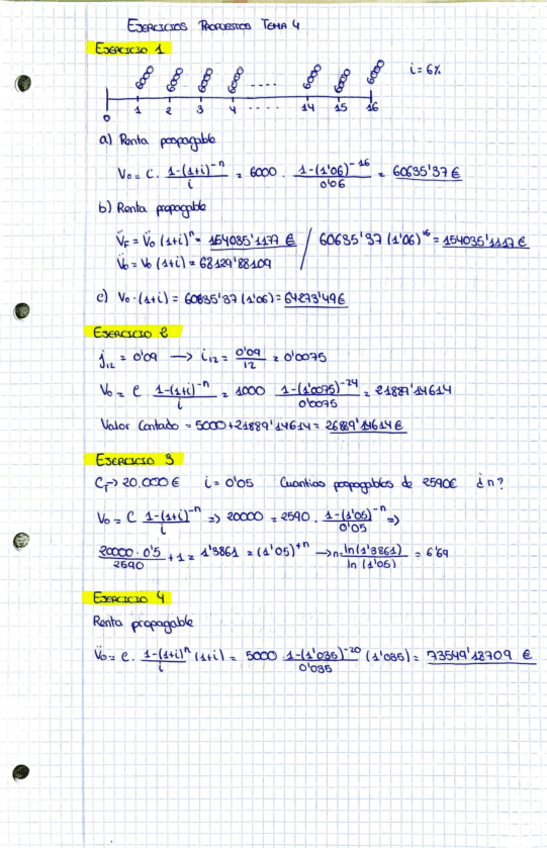 EJERCICIOS PROPUESTOS TEMA 4
EJERCICIO 1
6000 6000 6000 6000 .... 6000 6000 6000 i = 6%
0 1 2 3 4 .... 14 15 16
a) Renta pospagable
V₀ = C. 1-(1+i)⁻ⁿ / i = 6000 . 1-(1'06)⁻¹⁶ / 0'06 = 60635'37 €
b) Renta prepagable
V̈F = V̈₀ (1+i)ⁿ = 154035'1177 € / 60635'37 (1'06)¹⁶ = 154035'1117 €
V̈₀ = V₀ (1+i) =
c) V₀ · (1+i) = 60635'37 (1'06) = 64273'49€
EJERCICIO 2
j₁₂ = 0'09 → i₁₂ = 0'09 / 12 = 0'0075
V₀ = C 1-(1+i)⁻ⁿ / i = 1000 1-(1'0075)⁻²⁴ / 0'0075 = 21889'14614
Valor Contado = 5000 + 21889'14614 = 26889'14614 €
EJERCICIO 3
→ 20.000 € i = 0'05 Cuantías pospagables de 2590€ ¿n?
V₀ = C 1-(1+i)⁻ⁿ / i => 20000 = 2590 . 1-(1'05)⁻ⁿ / 0'05 =>
20000 · 0'5 / 2590 + 1 = 1'3861 = (1'05)⁺ⁿ → n = ln(1'3861) / ln (1'05) = 6'69
EJERCICIO 4
Renta prepagable
V̈₀ = C. 1-(1+i)ⁿ / i (1+i) = 5000 . 1-(1'035)⁻²⁰ / 0'035 (1'035) = 73549'18709 €